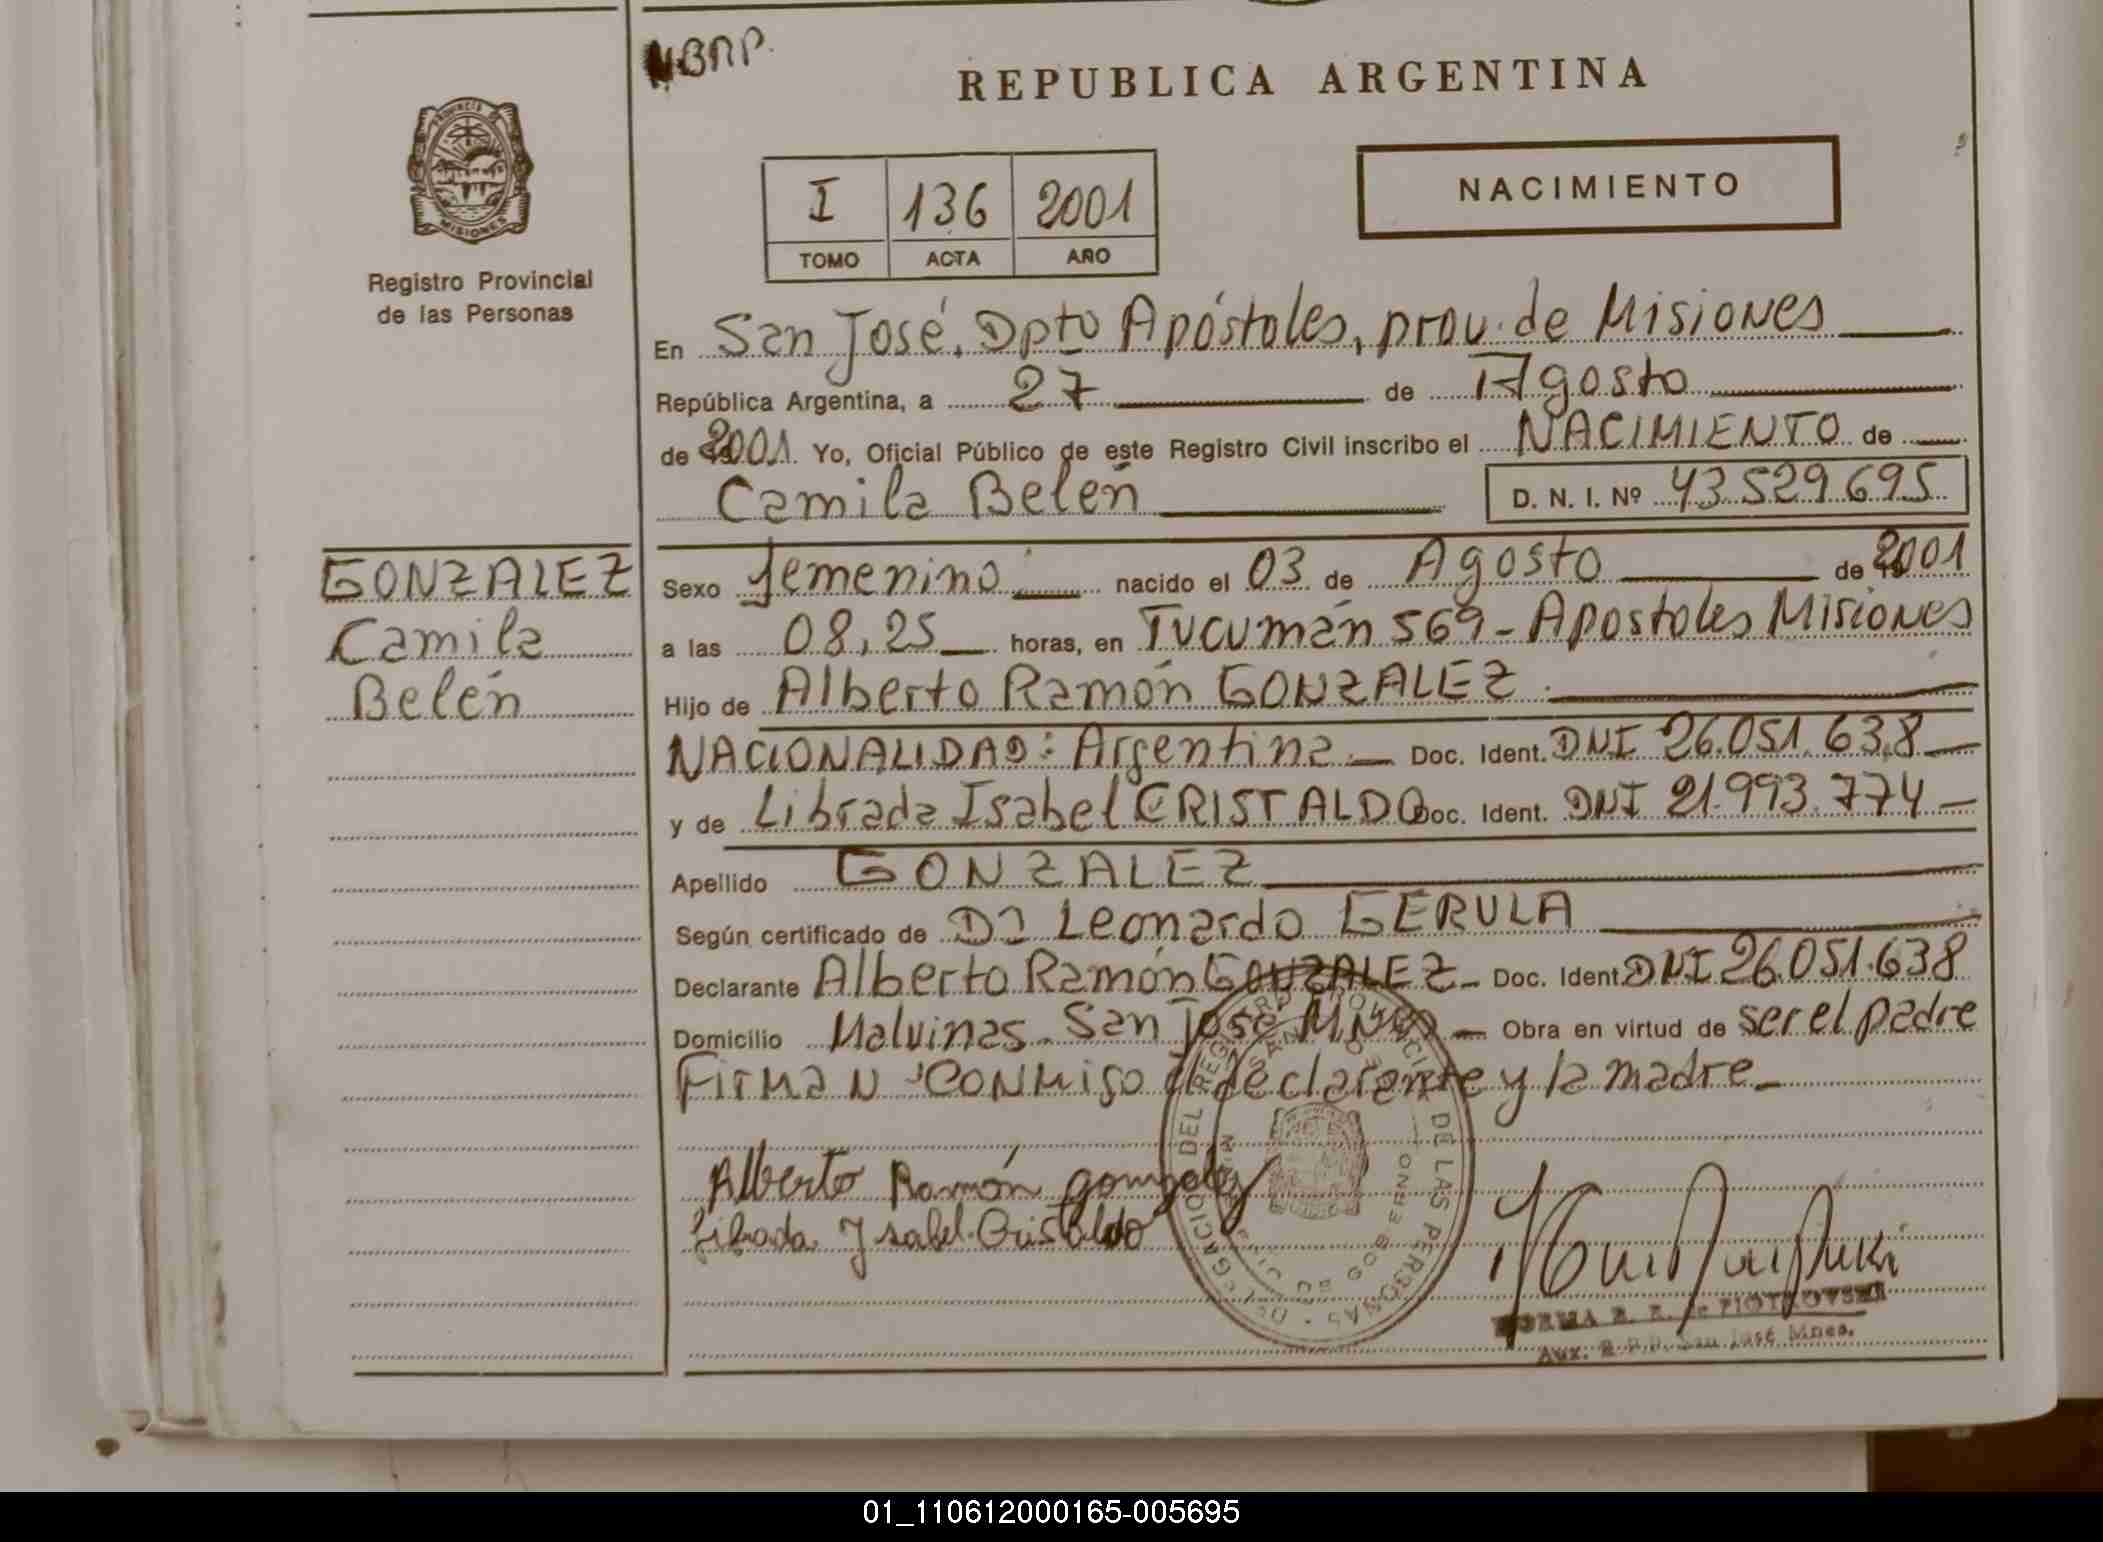 NBRP.
REPUBLICA ARGENTINA
PROVINCIA DE MISIONES
Registro Provincial
de las Personas
I 136 2001
TOMO ACTA AÑO
NACIMIENTO
En San José, Dpto Apóstoles, prov. de Misiones
República Argentina, a 27 de Agosto
de 2001 Yo, Oficial Público de este Registro Civil inscribo el NACIMIENTO de
Camila Belén D. N. I. Nº 43.529.695
GONZALEZ
Camila
Belén
Sexo femenino nacido el 03 de Agosto de 2001
a las 08,25 horas, en Tucumán 569 - Apostoles Misiones
Hijo de Alberto Ramón GONZALEZ
NACIONALIDAD: Argentina Doc. Ident. DNI 26.051.638
y de Librada Isabel CRISTALDO Doc. Ident. DNI 21.993.774
Apellido GONZALEZ
Según certificado de Dr Leonardo GERULA
Declarante Alberto Ramón GONZALEZ Doc. Ident. DNI 26.051.638
Domicilio Malvinas - San José Mnes Obra en virtud de ser el padre
Firman conmigo el declarante y la madre
Alberto Ramón gonzalez
Librada Ysabel Cristaldo
DEL REGISTRO PROVINCIAL DE LAS PERSONAS
NORMA B. R. de PIOTROVSKI
Aux. R.P.P. San José Mnes.
01_110612000165-005695